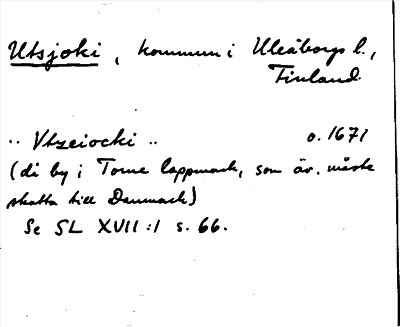 Utsjoki, kommun i Uleåborgs l.,
Finland.
.. Vtzeiocki .. o. 1671
(di by i Torne lappmark, som äv. måste
skatta till Danmark)
Se SL XVII:1 s. 66.